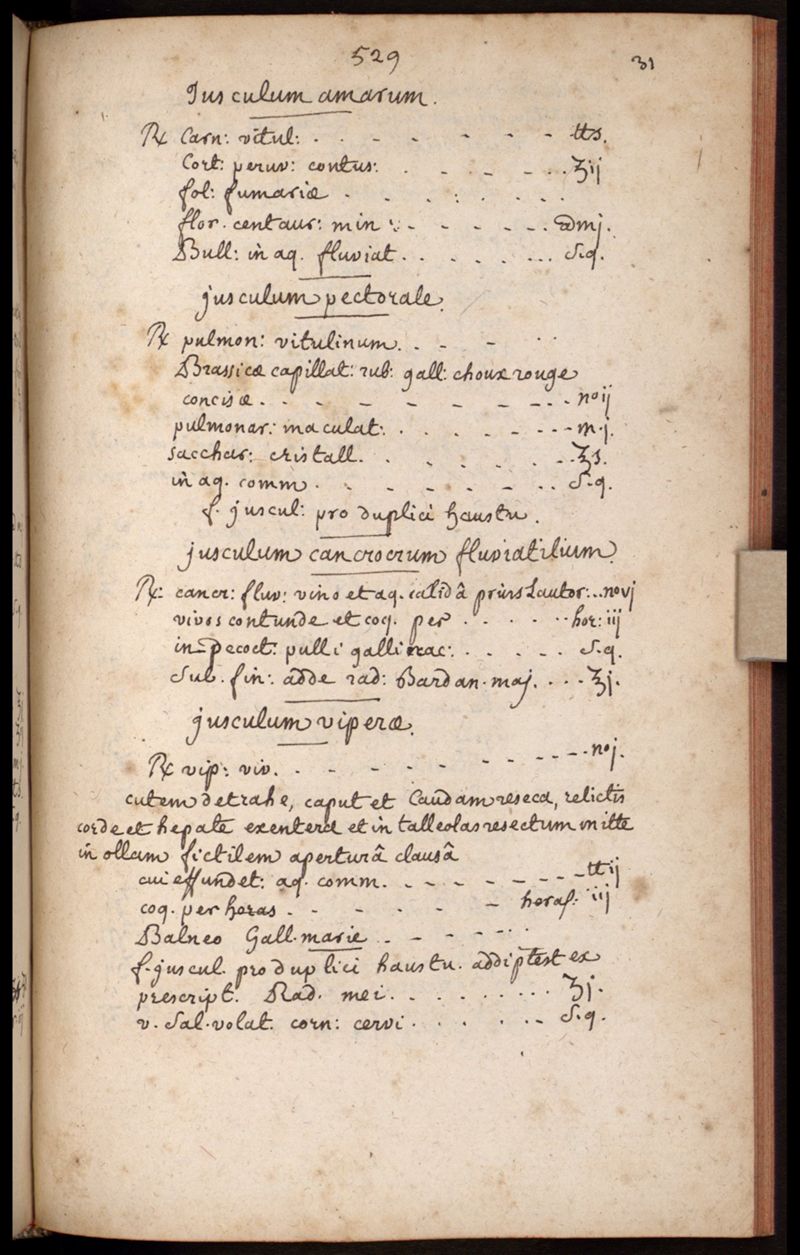 529
31
Jusculum amarum.
℞ Carn: vitul: . . - - - - - - ℔s.
Cort: peruv: contus: . . - - - . . ʒij
fol: fumariæ - . . : . . . .
flor. centaur: min : - - - - - . ām j.
Bull: in aq. fluviat . . . . . ... S.q.
jusculum pectorale.
℞ pulmon: vitulinum. . - - . .
Brassicæ capillat: rub: gall: choux rouge
concisæ . - . - - - - - . . - nº ij
pulmonar: maculat: . . . . - - - - m.j.
sacchar: cristall. . . . . . - . ʒs.
in aq. comm . . - - - - - . . S.q.
f. juscul: pro duplici haustu.
jusculum cancrorum fluviatilium.
℞: cancr: fluv: vino et aq. calidâ prius Lautor... nº vj
vivos contunde et coq. per . . . . . . hor: iij
in decoct: pulli gallinac: . . . . . S.q.
Sub. fin: adde rad: Bardan. maj. . . . ʒj.
jusculum viperæ.
℞ vip: viv. . - - - - - - - - - - nº j.
cutem detrahe, caput et Caudam reseca, relictis
corde et hepate exentera et in talleolas resectum mitte
in ollam fictilem aperturâ clausâ
cui effundet: aq. comm. . - - - - - - - - ℔ij
coq. per horas . - - - - - horas. iij
Balneo Gall. marie . . - - - - . .
f. juscul. pro duplici haustu. addi ptest ex
prescript. Rad. mei . . . . . . . . . ʒj.
v. Sal. volat. corn: cervi . . . . . - S.q.